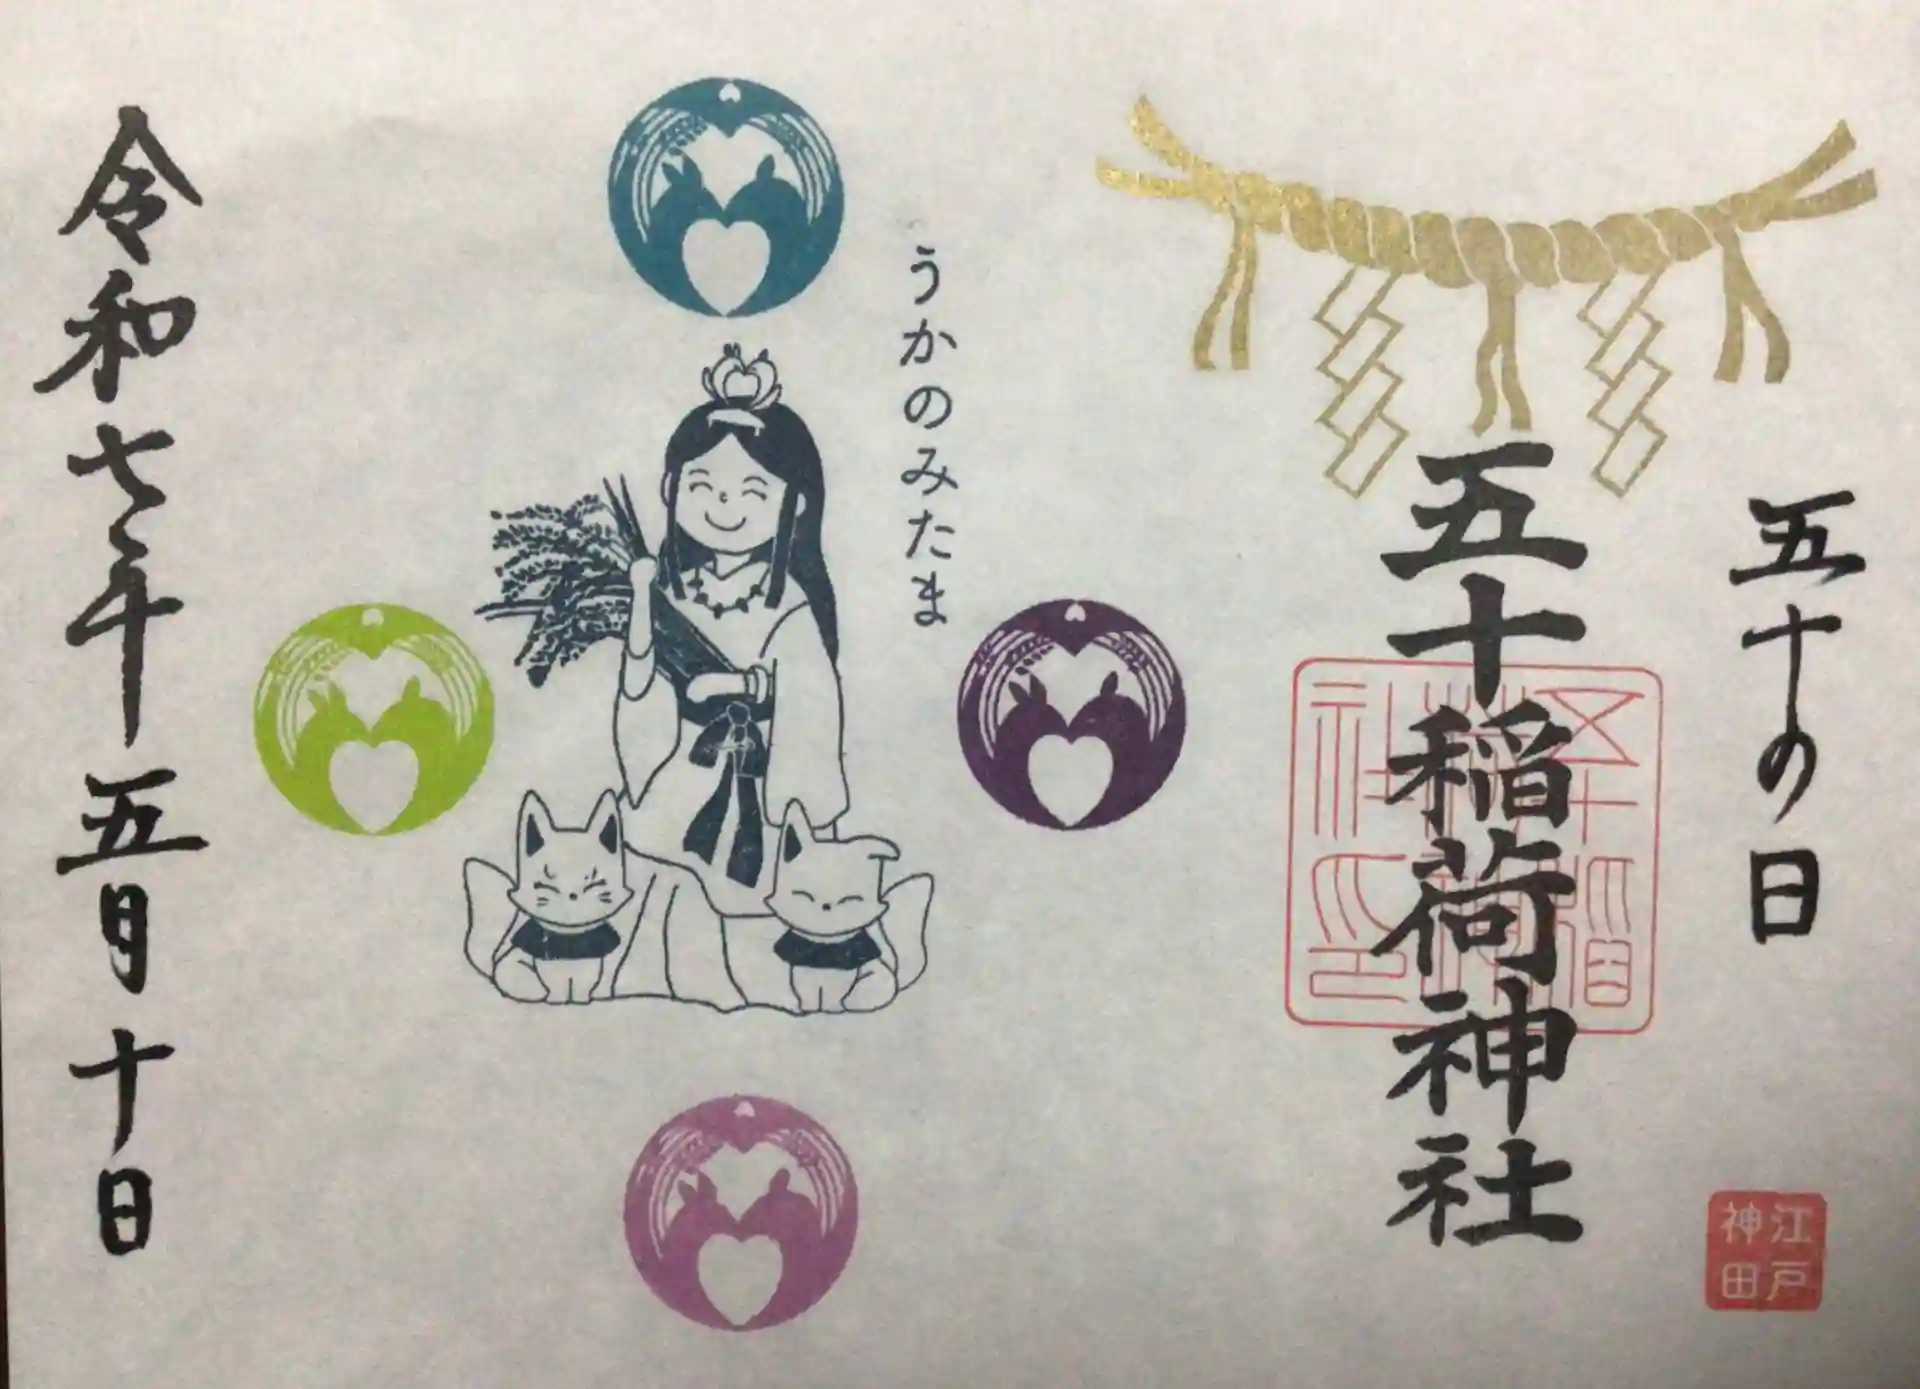 五十の日
五十稲荷神社
五十稲荷神社印
江戸
神田
うかのみたま
令和七年五月十日